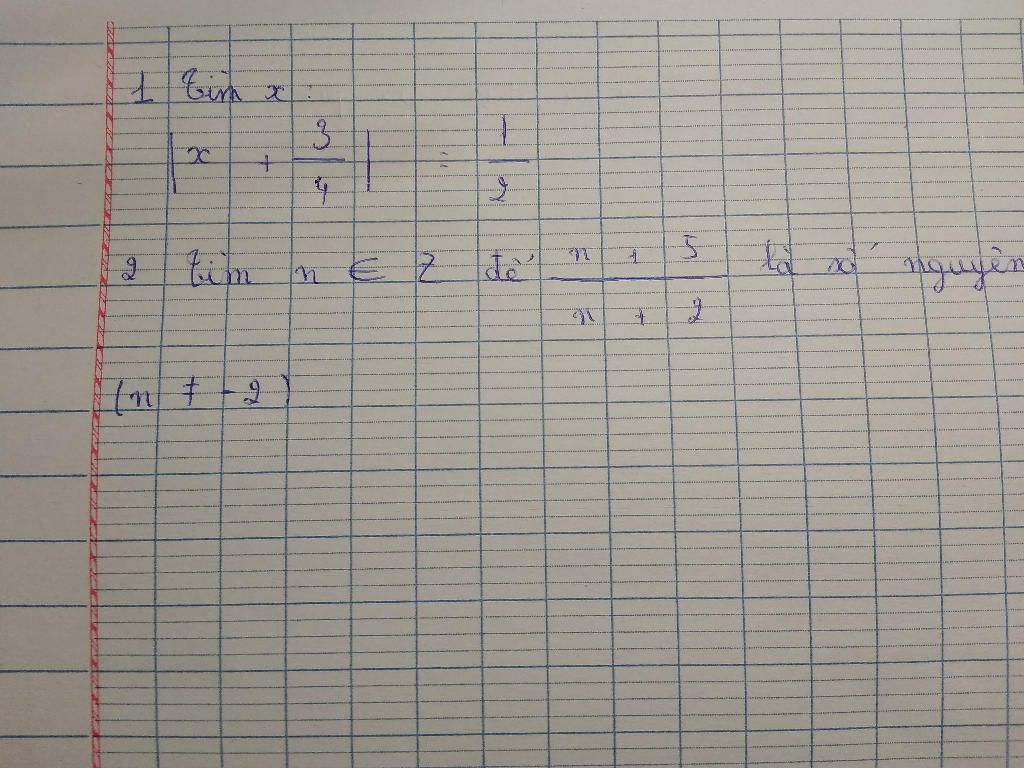 1 Tìm x :
| x + 3/4 | = 1/2
2 Tìm n ∈ Z để n + 5 / n + 2 là số nguyên
(n ≠ -2)